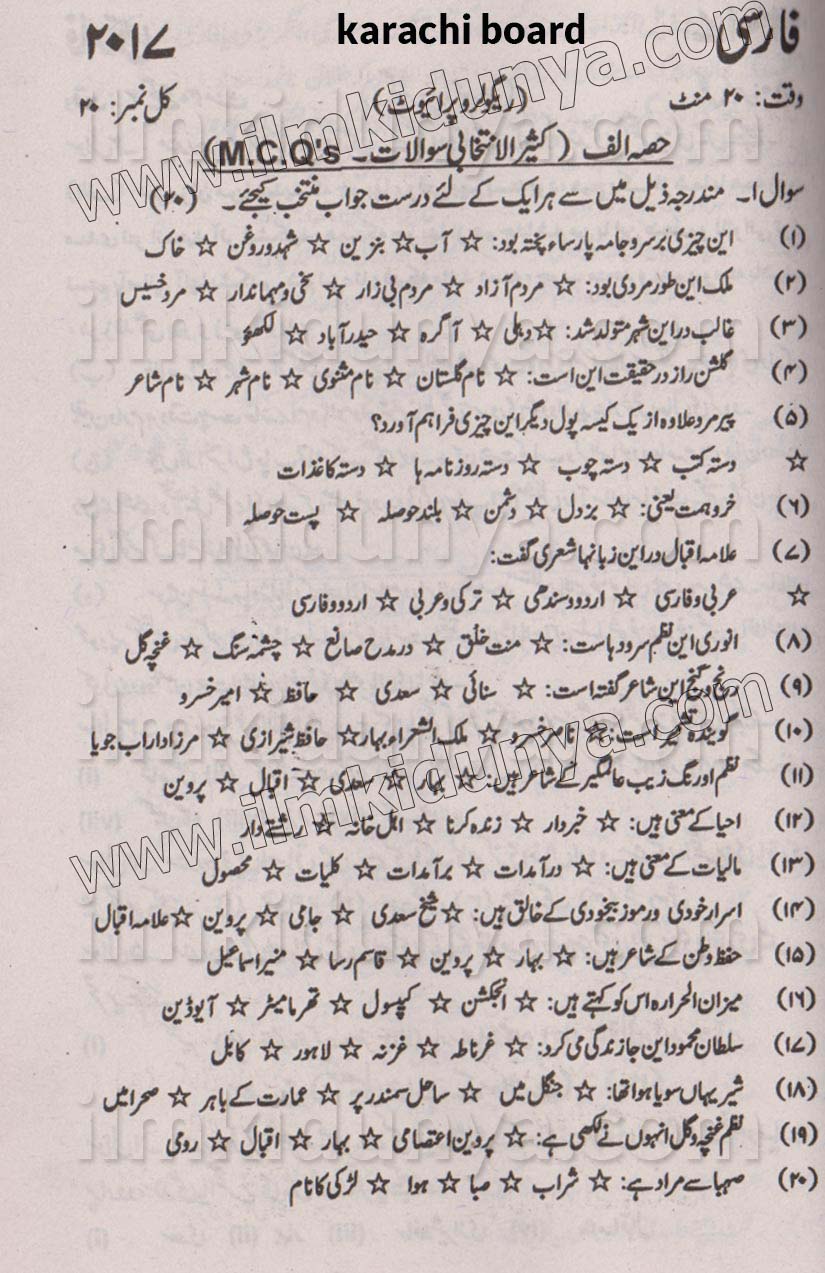 karachi board
فارسی ۲۰۱۷
وقت: ۲۰ منٹ (ریگولر و پرائیوٹ) کل نمبر: ۲۰
حصہ الف ( کثیر الانتخابی سوالات - M.C.Q's)
سوال ۱۔ مندرجہ ذیل میں سے ہر ایک کے لئے درست جواب منتخب کیجئے۔ (۲۰)
(۱) این چیزی بر سر و جامہ پارساء پختہ بود: ☆ آب ☆ بنزین ☆ شہد و روغن ☆ خاک
(۲) ملک این طور مردی بود: ☆ مردم آزاد ☆ مردم بی زار ☆ سخی و مہماندار ☆ مرد خسیس
(۳) غالب در این شہر متولد شد: ☆ دہلی ☆ آگرہ ☆ حیدرآباد ☆ لکھنؤ
(۴) گلشن راز در حقیقت این است: ☆ نام گلستان ☆ نام مثنوی ☆ نام شہر ☆ نام شاعر
(۵) پیر مرد علاوہ از یک کیسہ پول دیگر این چیزی فراہم آورد؟
☆ دستہ کتب ☆ دستہ چوب ☆ دستہ روزنامہ ہا ☆ دستہ کاغذات
(۶) خروہمت یعنی: ☆ بزدل ☆ دشمن ☆ بلند حوصلہ ☆ پست حوصلہ
(۷) علامہ اقبال در این زبانہا شعری گفت:
☆ عربی و فارسی ☆ اردو و سندھی ☆ ترکی و عربی ☆ اردو و فارسی
(۸) انوری این نظم سرود ہاست: ☆ منت خلق ☆ در مدح صانع ☆ چشمہ سنگ ☆ غنچہ گل
(۹) رنج و گنج این شاعر گفتہ است: ☆ سنائی ☆ سعدی ☆ حافظ ☆ امیر خسرو
(۱۰) گویندہ کشمیر است: ☆ ناصر خسرو ☆ ملک الشعراء بہار ☆ حافظ شیرازی ☆ مرزا داراب جویا
(۱۱) نظم اورنگ زیب عالمگیر کے شاعر ہیں: ☆ بہار ☆ سعدی ☆ اقبال ☆ پروین
(۱۲) احیا کے معنی ہیں: ☆ خبردار ☆ زندہ کرنا ☆ اہل خانہ ☆ رشتے دار
(۱۳) مالیات کے معنی ہیں: ☆ درآمدات ☆ برآمدات ☆ کلیات ☆ محصول
(۱۴) اسرار خودی و رموز بیخودی کے خالق ہیں: ☆ شیخ سعدی ☆ جامی ☆ پروین ☆ علامہ اقبال
(۱۵) حفظ وطن کے شاعر ہیں: ☆ بہار ☆ پروین ☆ قاسم رسا ☆ منیر اسماعیل
(۱۶) میزان الحرارہ اس کو کہتے ہیں: ☆ انجکشن ☆ کیپسول ☆ تھرمامیٹر ☆ آیوڈین
(۱۷) سلطان محمود این جا زندگی می کرد: ☆ غرناطہ ☆ غزنہ ☆ لاہور ☆ کابل
(۱۸) شیر یہاں سویا ہوا تھا: ☆ جنگل میں ☆ ساحل سمندر پر ☆ عمارت کے باہر ☆ صحرا میں
(۱۹) نظم غنچہ و گل انہوں نے لکھی ہے: ☆ پروین اعتصامی ☆ بہار ☆ اقبال ☆ رومی
(۲۰) صہبا سے مراد ہے: ☆ شراب ☆ صبا ☆ ہوا ☆ لڑکی کا نام
www.ilmkidunya.com
www.ilmkidunya.com
ilmkidunya.com
ilmkidunya.com
ilmkidunya.com
ilmkidunya.com
ilmkidunya.com
ilmkidunya.com
ilmkidunya.com